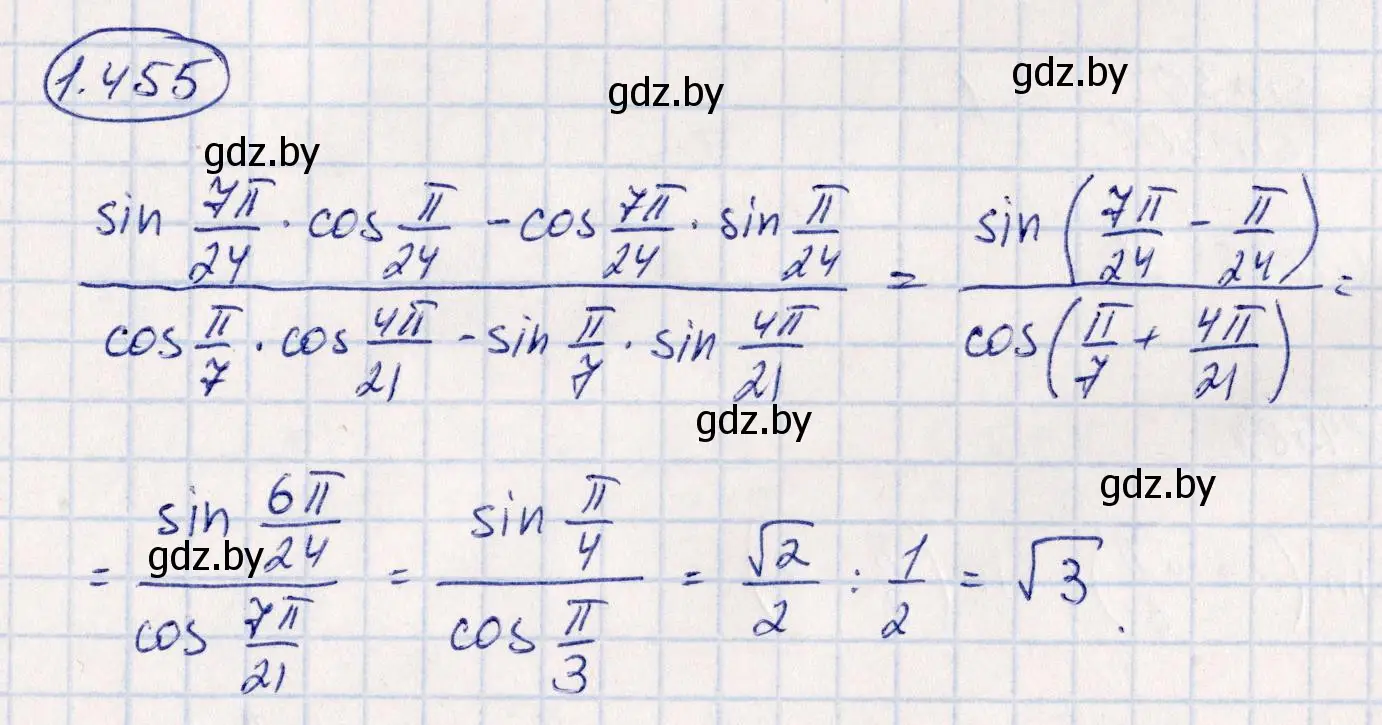 1.455
gdz.by
gdz.by
gdz.by
(sin 7π/24 · cos π/24 − cos 7π/24 · sin π/24) / (cos π/7 · cos 4π/21 − sin π/7 · sin 4π/21) = sin(7π/24 − π/24) / cos(π/7 + 4π/21) =
gdz.by
gdz.by
gdz.by
= (sin 6π/24) / (cos 7π/21) = (sin π/4) / (cos π/3) = √2/2 : 1/2 = √3.